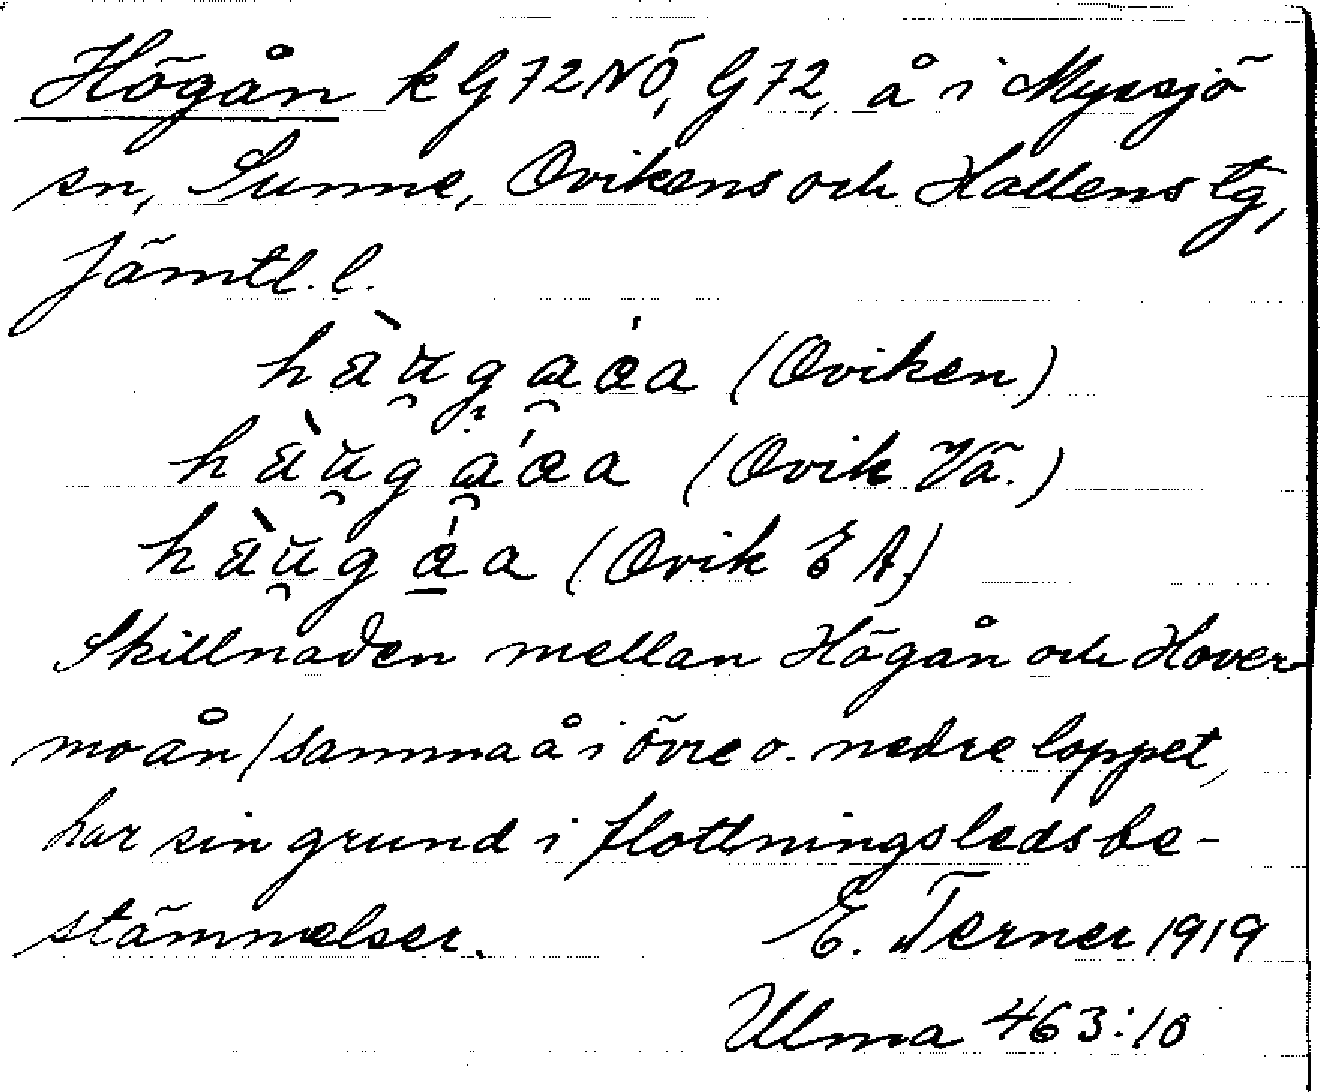 Högån k G72NÖ, G72, å i Myssjö
sn, Sunne, Ovikens och Hallens tg,
Jämtl. l.
(Oviken)
(Ovik Vä.)
(Ovik E A)
Skillnaden mellan Högån och Hover
moån / samma å i övre o. nedre loppet,
har sin grund i flottningsledsbe-
stämmelser.
E. Terner 1919
Ulma 463:10